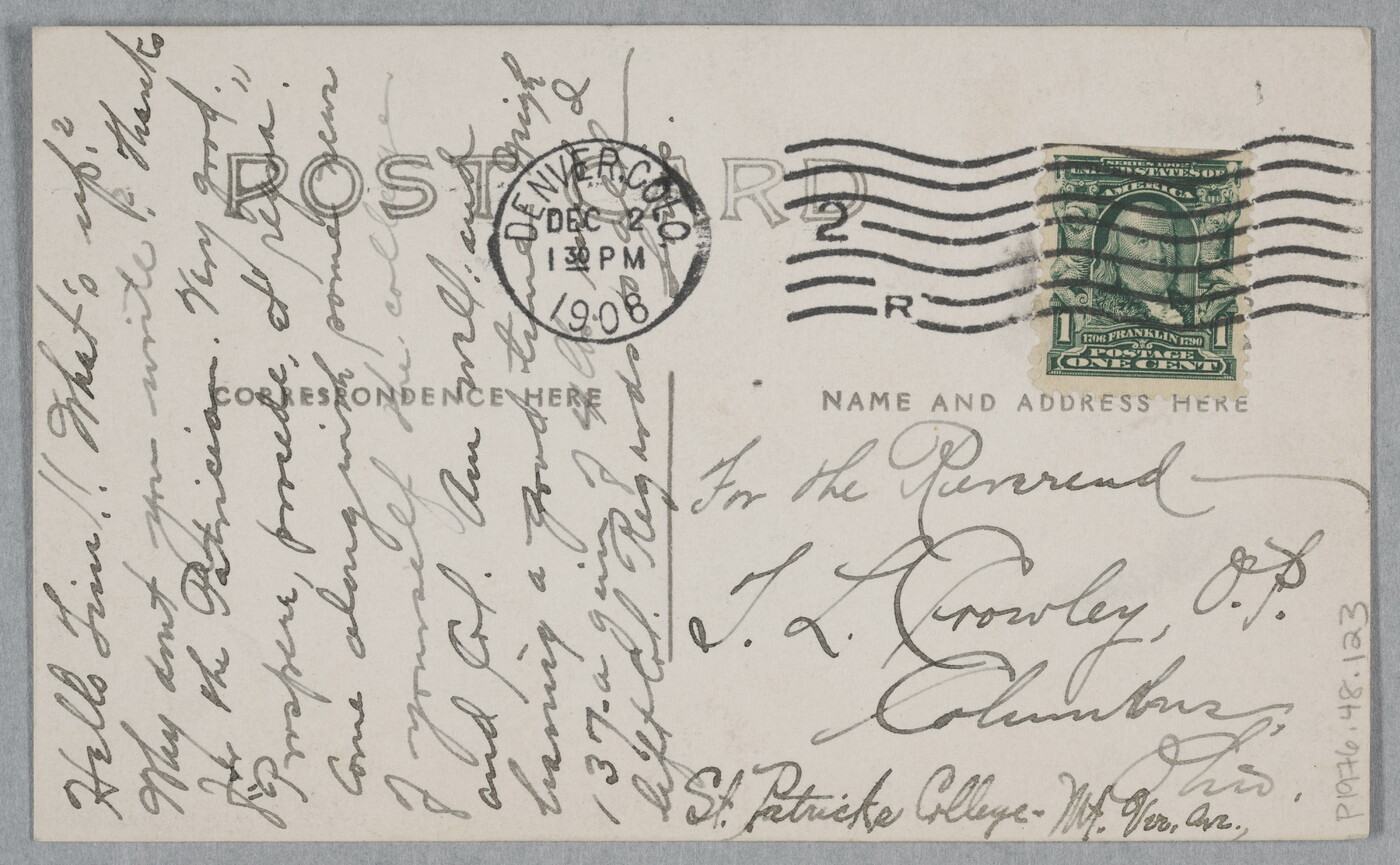 POST CARD
CORRESPONDENCE HERE
NAME AND ADDRESS HERE
DENVER, COLO.
DEC 2
1 30 PM
1908
2
R
SERIES 1902
UNITED STATES OF
AMERICA
1 1706 FRANKLIN 1790 1
POSTAGE
ONE CENT
Hello Jim!! What's up?
Why dont you write? Thanks
for the Patrician. Very good."
Prospere, procede, et regna.
Come along with some
of yourself the college
and Col. Am well and
having a good time. Weigh
137 - a gain of since I
left Col. Regards to
For the Reverend
J. L. Crowley, O.P.
Columbus,
Ohio.
St. Patricks College - Mt. Ver. Av.,
P1976.48.123